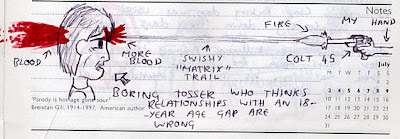 Notes
FIRE
MY HAND
BLOOD
MORE
BLOOD
SWISHY
"MATRIX"
TRAIL
COLT 45
July
M T W T F S S
1 2
3 4 5 6 7 8 9
10 11 12 13 14 15 16
17 18 19 20 21 22 23
24 25 26 27 28 29 30
31
BORING TOSSER WHO THINKS
RELATIONSHIPS WITH AN 18-
YEAR AGE GAP ARE
WRONG
'Parody is homage gone sour.'
Brendan Gill, 1914-1997, American author